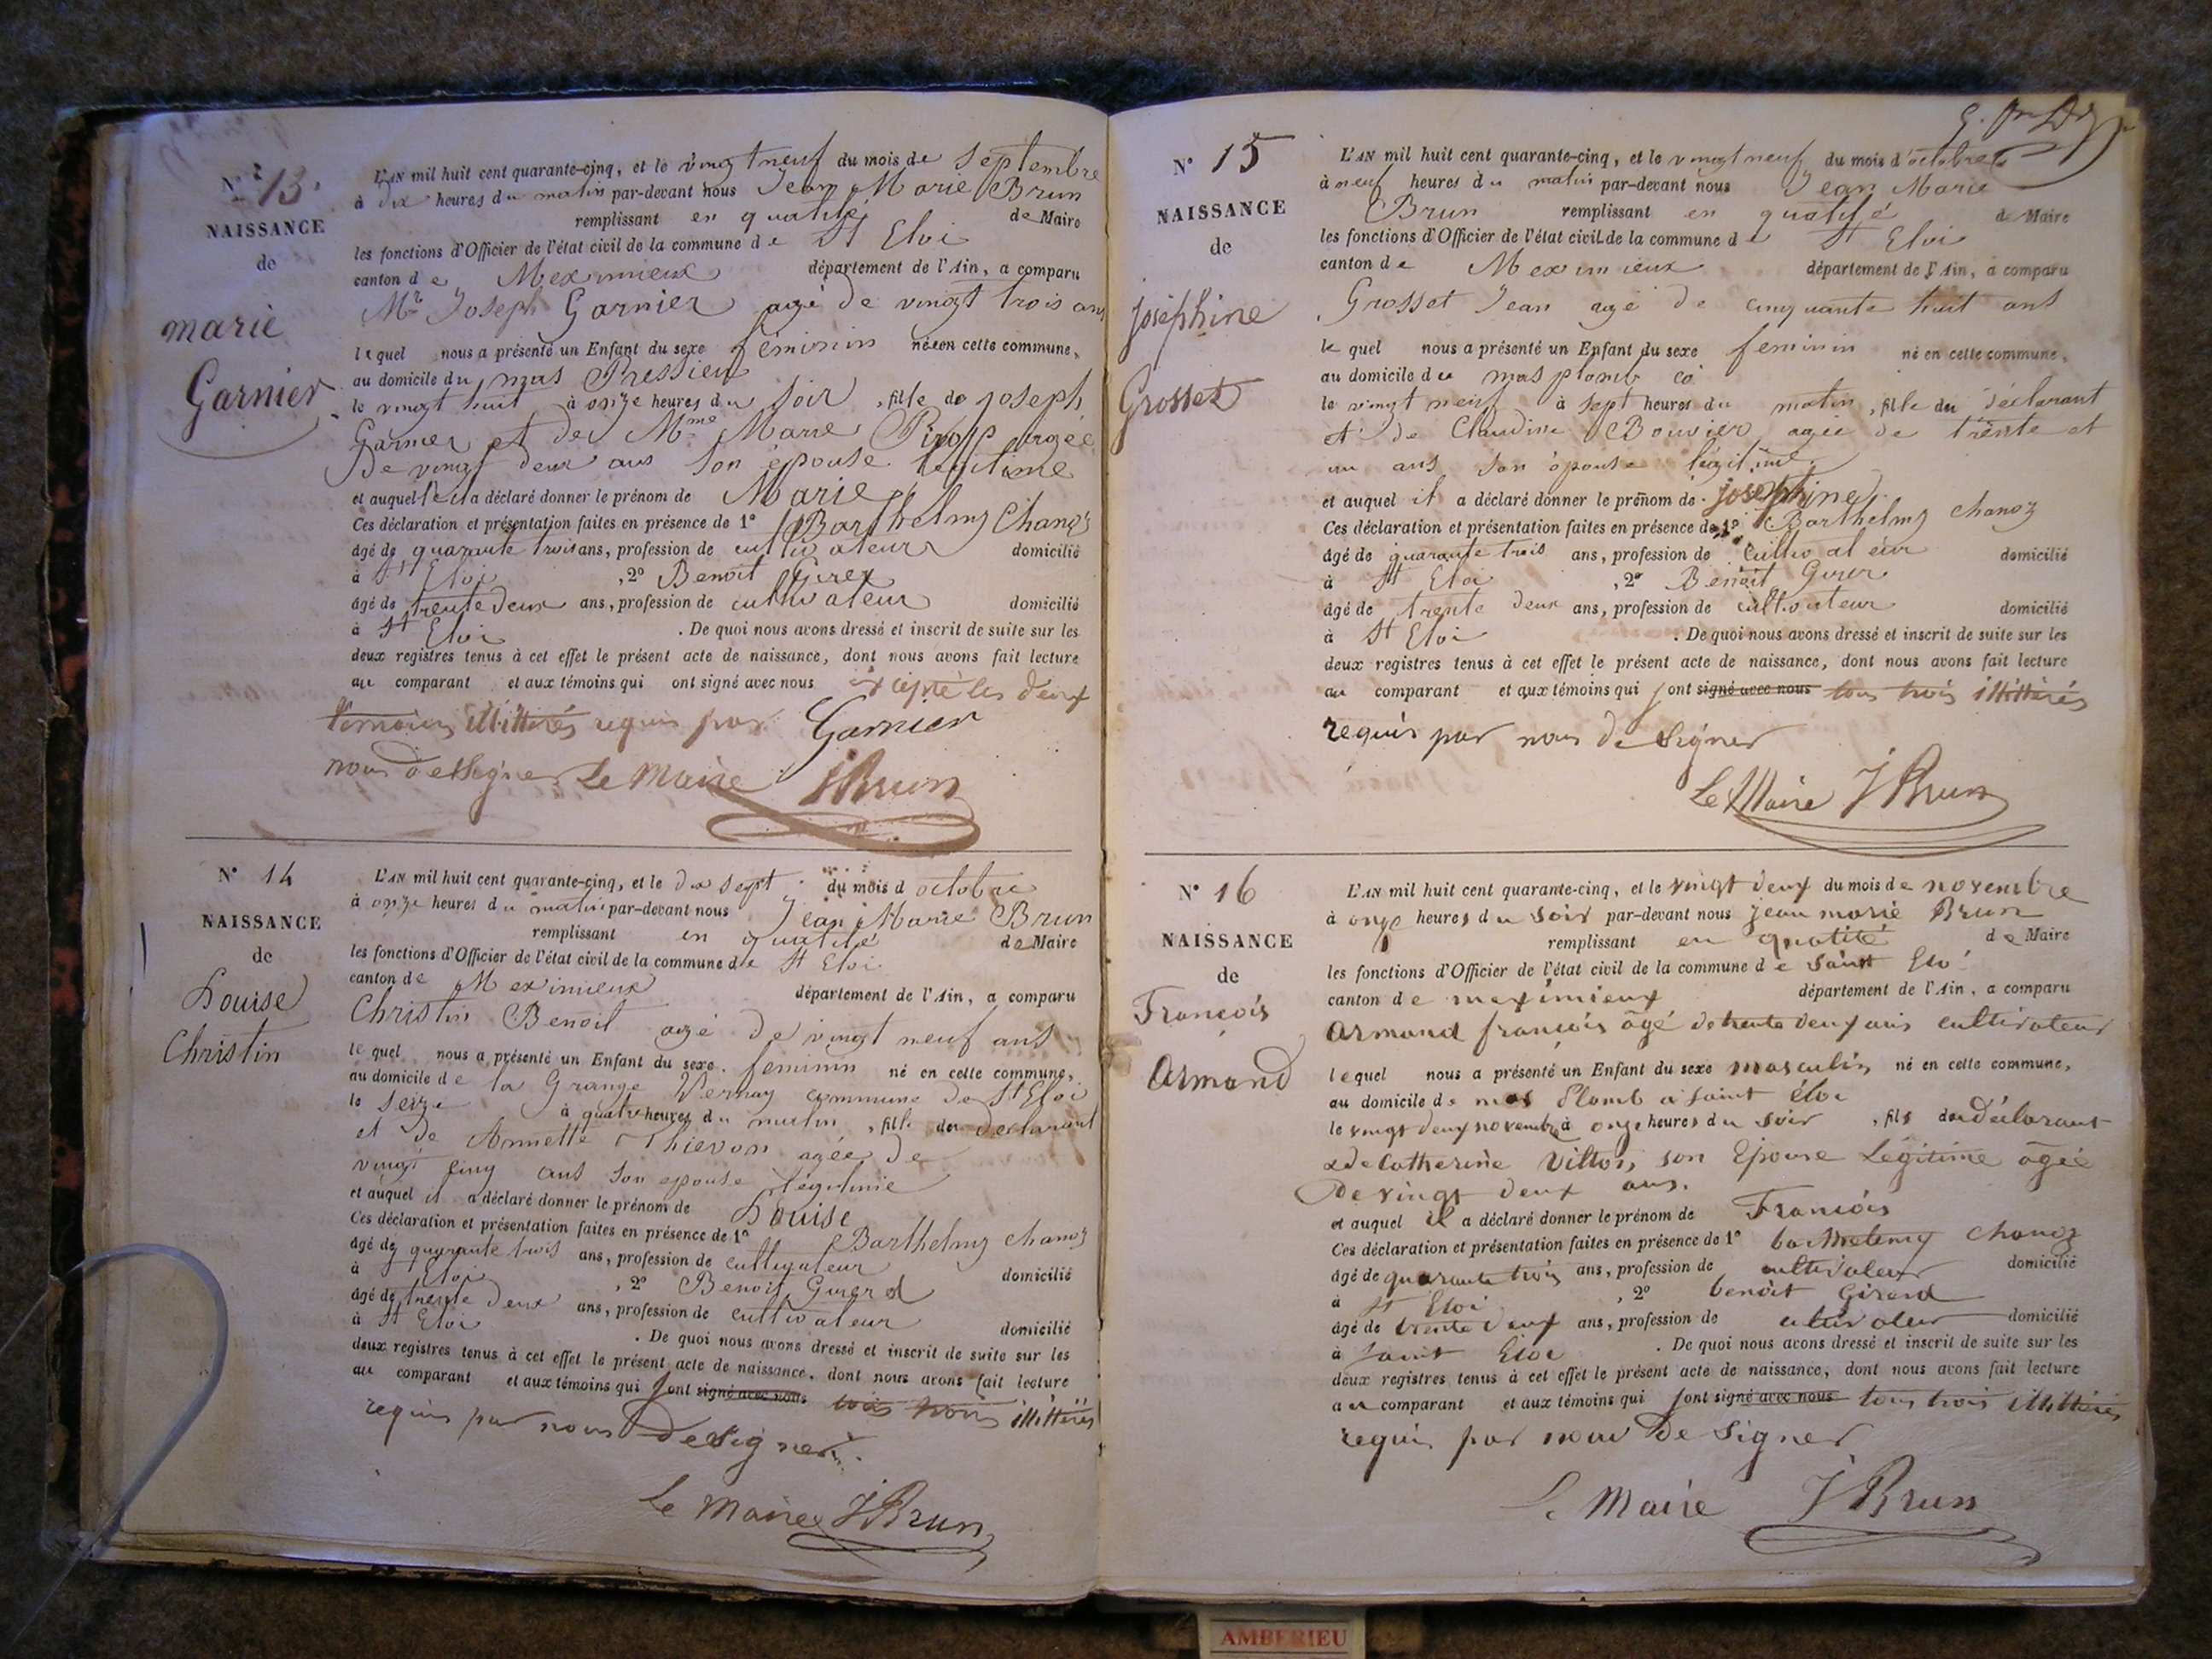 N° 13.
NAISSANCE
de
marie
Garnier
L'AN mil huit cent quarante-cinq, et le vingt neuf du mois de Septembre
à dix heures du matin par-devant nous Jean Marie Brun
remplissant en qualité de Maire
les fonctions d'Officier de l'état civil de la commune de St Eloi
canton de Meximieux département de l'Ain, a comparu
Mr Joseph Garnier agé de vingt trois ans
lequel nous a présenté un Enfant du sexe féminin né en cette commune,
au domicile du mas Pressieu
le vingt huit à onze heures du Soir, fille de joseph
Garnier et de Mme Marie agée
de vingt deux ans son épouse légitime
et auquel il a déclaré donner le prénom de Marie
Ces déclaration et présentation faites en présence de 1° Barthelmy Chanoz
âgé de quarante trois ans, profession de cultivateur domicilié
à St Eloi, 2° Benoit Girer
âgé de trente deux ans, profession de cultivateur domicilié
à St Eloi. De quoi nous avons dressé et inscrit de suite sur les
deux registres tenus à cet effet le présent acte de naissance, dont nous avons fait lecture
au comparant et aux témoins qui ont signé avec nous excepté les deux
temoins illittérés requis par Garnier
nous de Signer Le Maire JBrun
N° 14
NAISSANCE
de
Louise
Christin
L'AN mil huit cent quarante-cinq, et le dix sept du mois d octobre
à onze heures du matin par-devant nous Jean Marie Brun
remplissant en qualité de Maire
les fonctions d'Officier de l'état civil de la commune de St Eloi
canton de Meximieux département de l'Ain, a comparu
Christin Benoit agé de vingt neuf ans
lequel nous a présenté un Enfant du sexe feminin né en cette commune,
au domicile de la Grange Vernay commune de St Eloi
le seize à quatre heures du matin, fille du declarant
et de Annette Thievon agée de
vingt cinq ans son epouse légitime
et auquel il a déclaré donner le prénom de Louise
Ces déclaration et présentation faites en présence de 1° Barthelmy chanoz
âgé de quarante trois ans, profession de cultivateur domicilié
à Eloi, 2° Benoit Girerd
âgé de trente deux ans, profession de cultivateur domicilié
à St Eloi. De quoi nous avons dressé et inscrit de suite sur les
deux registres tenus à cet effet le présent acte de naissance, dont nous avons fait lecture
au comparant et aux témoins qui sont signé avec nous trois illittérés
requis par nous de Signer.
Le Maire JBrun
N° 15
NAISSANCE
de
joséphine
Grosset
L'AN mil huit cent quarante-cinq, et le vingt neuf du mois d'octobre
à neuf heures du matin par-devant nous Jean Marie
Brun remplissant en qualité de Maire
les fonctions d'Officier de l'état civil de la commune de St Eloi
canton de Meximieux département de l'Ain, a comparu
Grosset Jean agé de cinquante huit ans
lequel nous a présenté un Enfant du sexe feminin né en cette commune,
au domicile du mas plomb
le vingt neuf à sept heures du matin, fille du déclarant
et de Claudine Bouvier agée de trente et
un ans son épouse légitime
et auquel il a déclaré donner le prénom de joséphine
Ces déclaration et présentation faites en présence de 1° Barthelmy chanoz
âgé de quarante trois ans, profession de cultivateur domicilié
à St Eloi, 2° Benoit Girer
âgé de trente deux ans, profession de cultivateur domicilié
à St Eloi. De quoi nous avons dressé et inscrit de suite sur les
deux registres tenus à cet effet le présent acte de naissance, dont nous avons fait lecture
au comparant et aux témoins qui sont signé avec nous tous trois illittérés
requis par nous de Signer
Le Maire JBrun
N° 16
NAISSANCE
de
François
Armand
L'AN mil huit cent quarante-cinq, et le vingt deux du mois de novembre
à onze heures du soir par-devant nous jean marie Brun
remplissant en qualité de Maire
les fonctions d'Officier de l'état civil de la commune de saint Eloi
canton de meximieux département de l'Ain, a comparu
Armand françois âgé de trente deux ans cultivateur
lequel nous a présenté un Enfant du sexe masculin né en cette commune,
au domicile de mas Plomb à saint éloi
le vingt deux novembre à onze heures du soir, fils du déclarant
& de Catherine Vitton, son Epouse Légitime âgée
de vingt deux ans.
et auquel il a déclaré donner le prénom de François
Ces déclaration et présentation faites en présence de 1° barthelemy chanoz
âgé de quarante trois ans, profession de cultivateur domicilié
à St Eloi, 2° benoit Girerd
âgé de trente deux ans, profession de cultivateur domicilié
à saint Eloi. De quoi nous avons dressé et inscrit de suite sur les
deux registres tenus à cet effet le présent acte de naissance, dont nous avons fait lecture
au comparant et aux témoins qui sont signé avec nous tous trois illittérés
requis par nous de Signer
Le Maire JBrun
AMBERIEU